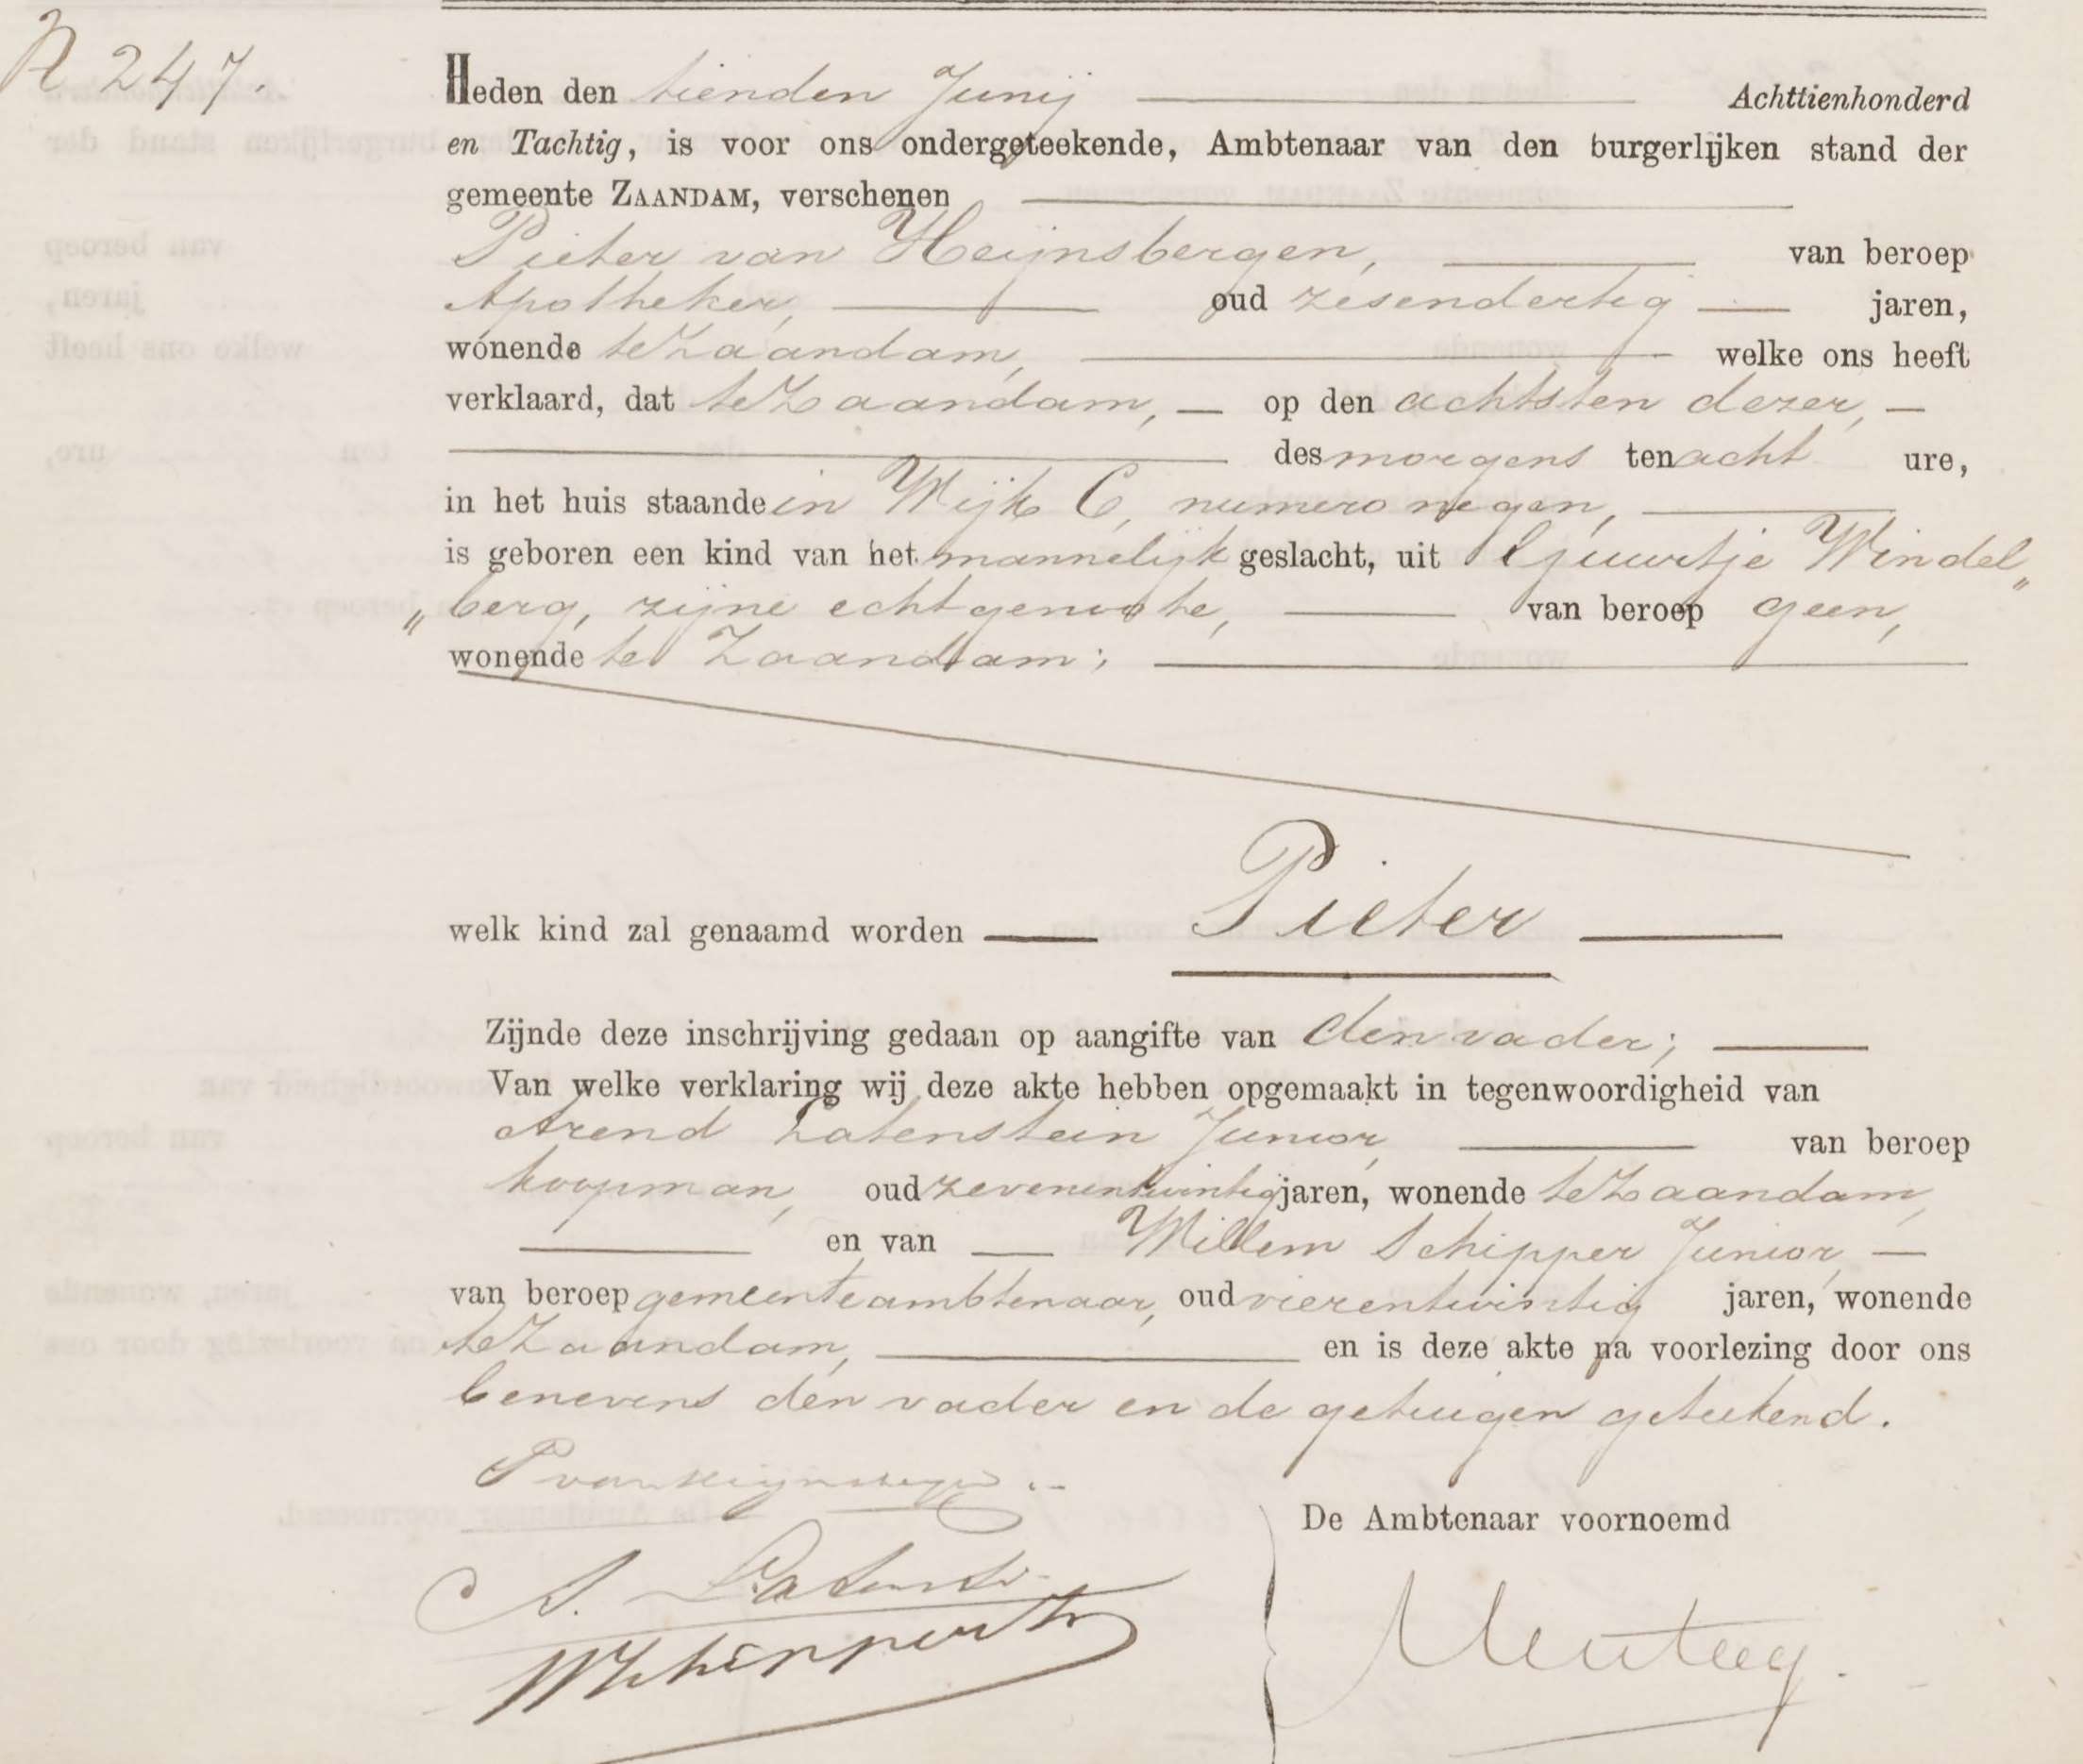 N 247.
Heden den tienden Junij Achttienhonderd
en Tachtig, is voor ons ondergeteekende, Ambtenaar van den burgerlijken stand der
gemeente ZAANDAM, verschenen
Pieter van Heijnsbergen, van beroep
Apotheker, oud zesendertig jaren,
wonende te Zaandam, welke ons heeft
verklaard, dat te Zaandam, op den achtsten dezer,
des morgens ten acht ure,
in het huis staande in Wijk C, numero negen,
is geboren een kind van het mannelijk geslacht, uit Sjuwrtje Windel„
„berg, zijne echtgenoote, van beroep geen,
wonende te Zaandam;
welk kind zal genaamd worden Pieter
Zijnde deze inschrijving gedaan op aangifte van den vader;
Van welke verklaring wij deze akte hebben opgemaakt in tegenwoordigheid van
Arend Latenstein Junior, van beroep
koopman, oud zevenentwintig jaren, wonende te Zaandam,
en van Willem Schipper Junior,
van beroep gemeenteambtenaar, oud vierentwintig jaren, wonende
te Zaandam, en is deze akte na voorlezing door ons
benevens den vader en de getuigen geteekend.
P van Heijnsbergen
De Ambtenaar voornoemd
A. Latenstein
W Schipper Jr